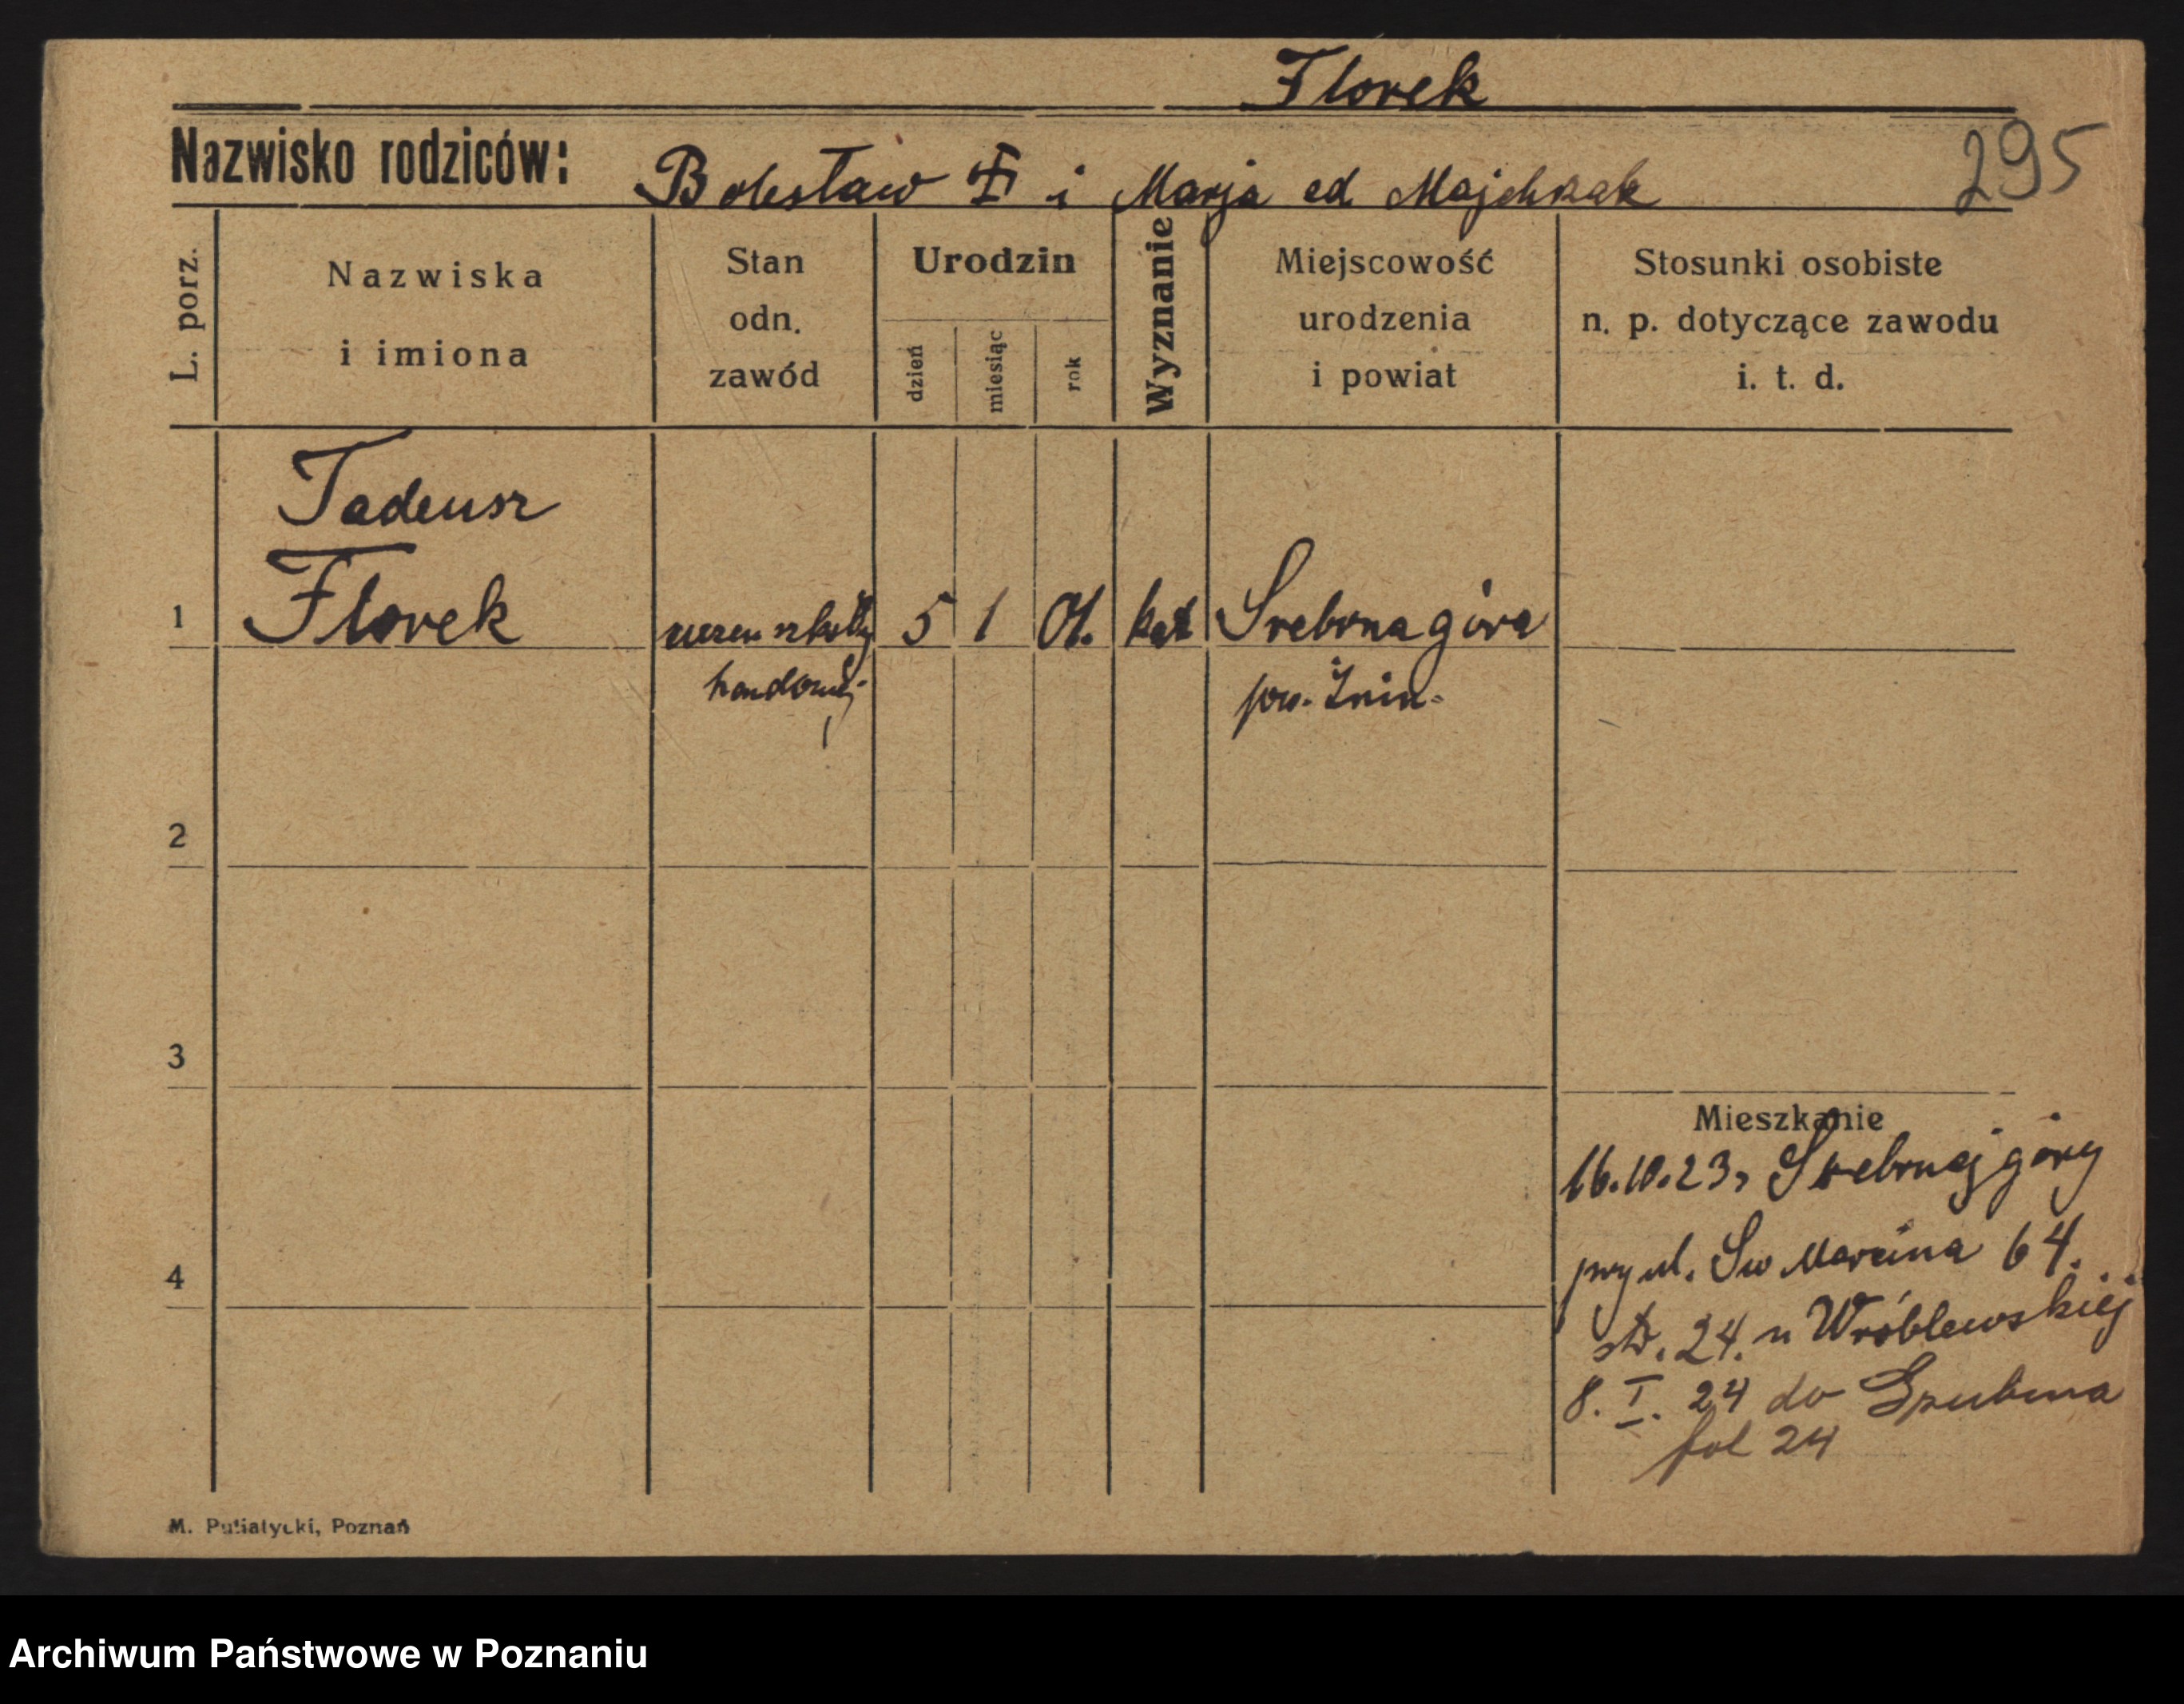 Florek
295
Nazwisko rodziców: Bolesław F i Marja ed Majchrzak
L. porz.
Nazwiska
i imiona
Stan
odn.
zawód
Urodzin
dzień
miesiąc
rok
Wyznanie
Miejscowość
urodzenia
i powiat
Stosunki osobiste
n. p. dotyczące zawodu
i. t. d.
Tadeusz
1 Florek uczen szkoły 5 1 01. kat Srebrnagóra
handowej pow. Żnin
2
3
Mieszkanie
16.10.23 Srebrnej góry
4
przy ul. Sw Marcina 64.
str. 24. u Wróblewskiej
8. I. 24 do
fol 24
M. Putiatycki, Poznań
Archiwum Państwowe w Poznaniu